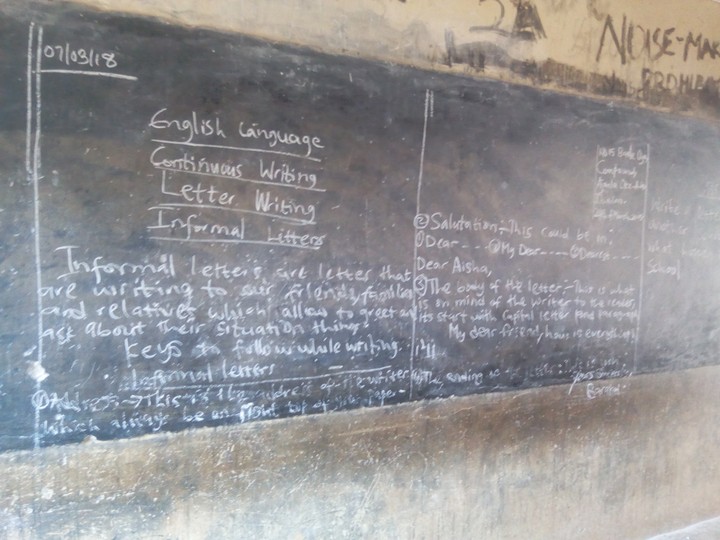 2A
NOISE-MA
PROHIB
07/03/18
English Language
Continuous Writing
Letter Writing
Informal Letters
Informal letters are letter that
are writing to our friends, families
and relatives which allow to greet and
ask about their situation things.
Keys to follow while writing
Informal letters
① Address:- This is the address of the writer
which always be on right top of your paper.
② Salutation:- This could be in
① Dear ---- ② My Dear ---- ③ Dearest ----
Dear Aisha,
③ The body of the letter:- This is what
is on mind of the writer to the reader,
its start with capital letter and paragraph
My dear friend, how is everything
④ The ending of the letter: This is
Yours
Compound,
Write a
what
School